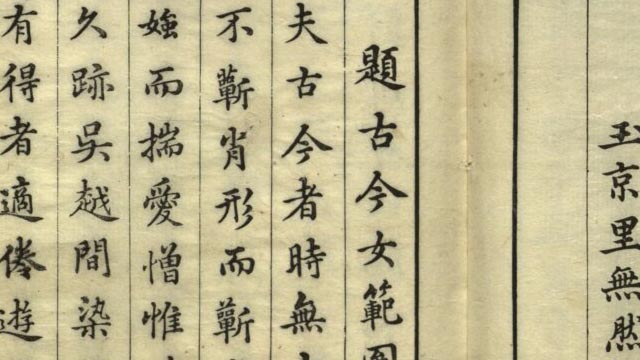 玉京里無然
題古今女範圖
夫古今者時無
不蘄肖形而蘄
媸而揣愛憎惟
久跡吳越間染
有得者適倦遊